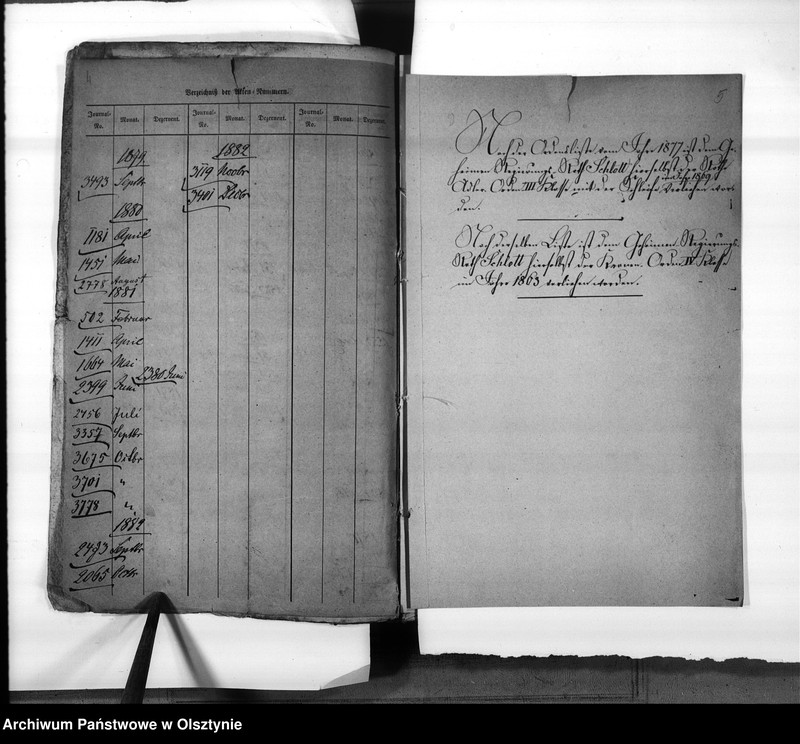 Verzeichniß der Akten-Nummern.
Journal-No. Monat. Dezernent. Journal-No. Monat. Dezernent. Journal-No. Monat. Dezernent.
1879 1882
3493 Septbr 3119 Novbr
3401 Decbr
1880
1181 April
1451 Mai
2778 August
1881
502 Februar
1411 April
1664 Mai
2399 Juni 2380 Juni
2756 Juli
3357 Septbr
3675 Octbr
3701 "
3778 "
1882
2493 Septbr
2065
5
Nach der Ordensliste vom Jahr 1877 ist dem Ge-
heimen Regierungs-Rath Schlott hierselbst der Rothe
im Jahr 1869
Adler-Orden III Klasse mit der Schleife verliehen wor-
den.
Nach derselben Liste ist dem Geheimen Regierungs-
Rath Schlott hierselbst der Kronen-Orden IV Klasse
im Jahre 1863 verliehen worden.
Archiwum Państwowe w Olsztynie